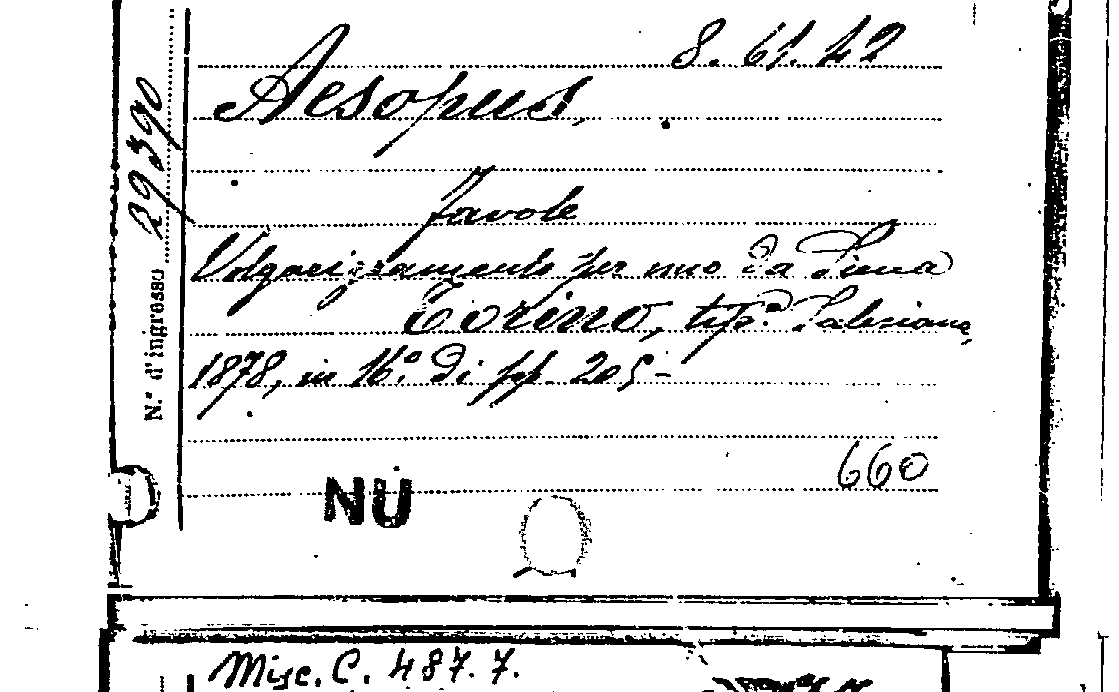 8. 61. 42
Aesopus,
Favole
Volgarizzamento per uno da Siena
Torino, tip.ª Salesiana,
1878, in 16.º di pp. 205-
660
N.º d'ingresso 29390
NU
Misc. C. 487. 7.